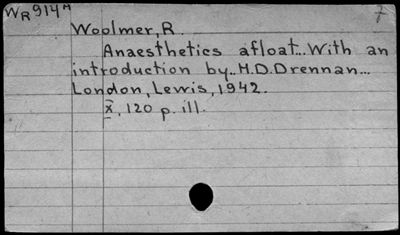 WR914M 7
Woolmer, R.
Anaesthetics afloat... With an
introduction by.. M.D.Drennan...
London, Lewis, 1942.
x, 120 p. ill.